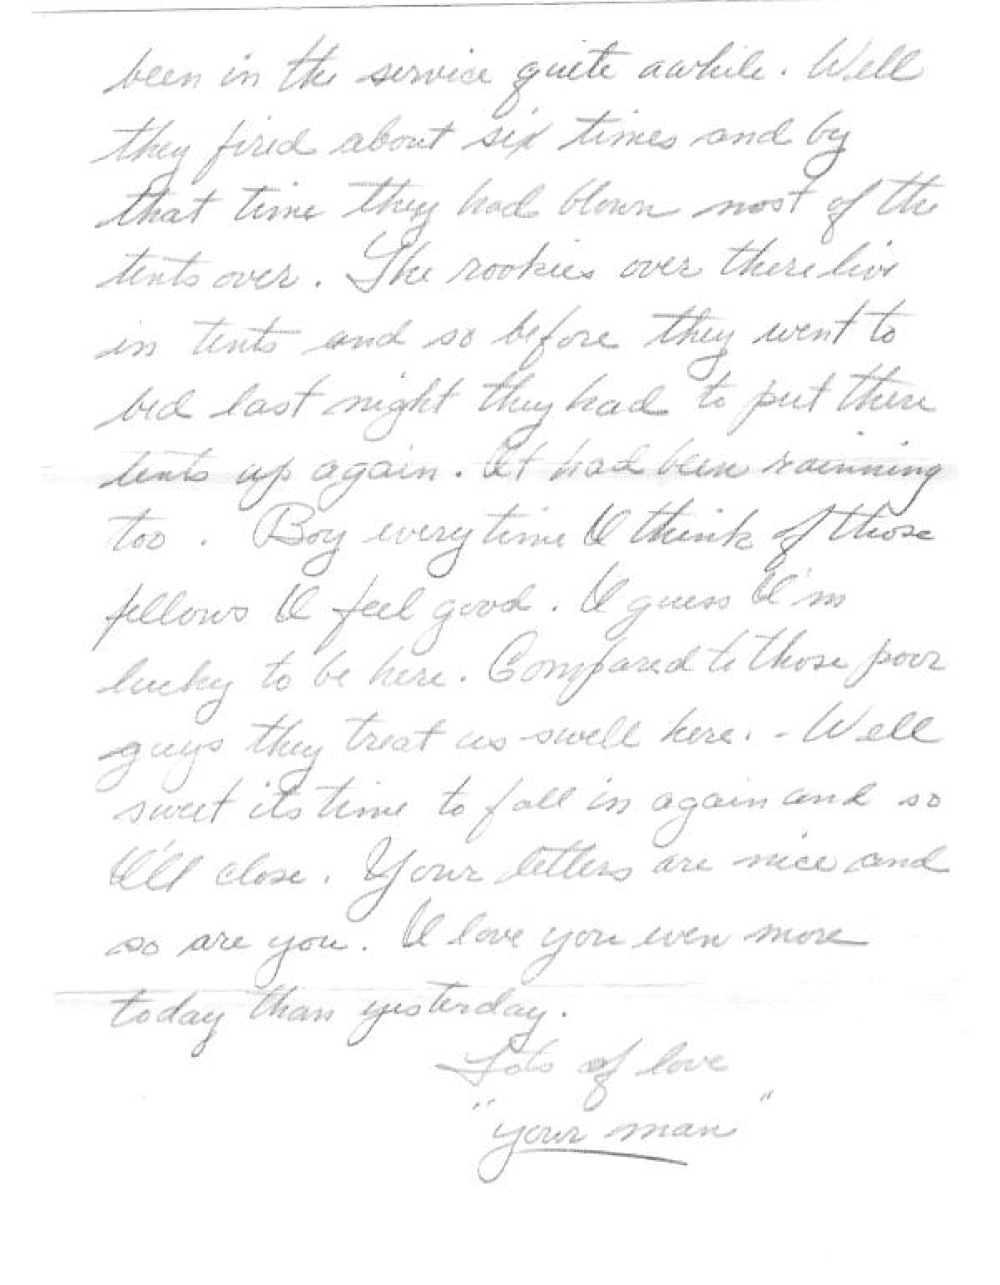 been in the service quite awhile. Well
they fired about six times and by
that time they had blown most of the
tents over. The rookies over there live
in tents and so before they went to
bed last night they had to put there
tents up again. It had been rainning
too. Boy every time I think of those
fellows I feel good. I guess I'm
lucky to be here. Compared to those poor
guys they treat us swell here. - Well
sweet its time to fall in again and so
I'll close. Your letters are nice and
so are you. I love you even more
today than yesterday.
Lots of love
"your man"